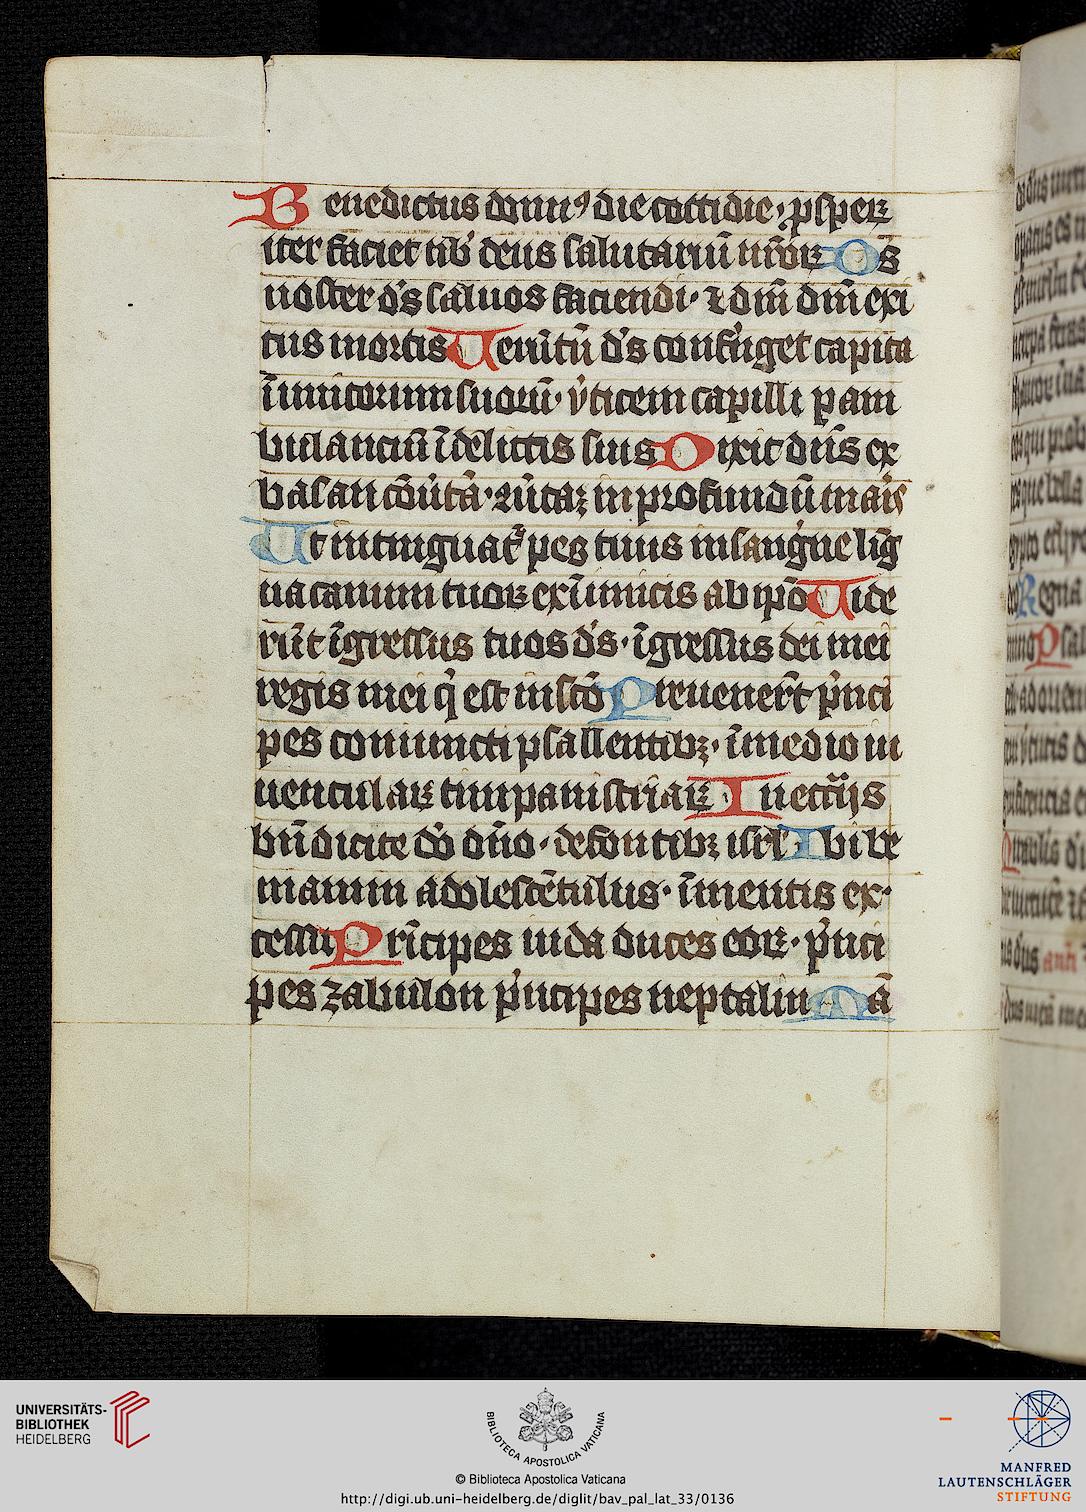 Benedictus domin⁹ die cottidie · ꝓsperꝝ
iter faciet nob̕ deus salutariū nr̄oꝝ Ds̄
noster ds̄ saluos faciendi · ⁊ dn̄i dn̄i exi
tus mortis Uerūtn̄ ds̄ confrīget capita
īimicorum suorū · v̓ticem capilli ꝑam
bulanciū ī delictis suis Dixit dn̄s ex
basan cōu̓tā · ꝯu̓taꝫ in profundū mar̓s
Ut intinguat᷑ pes tuus in sangīne lig̅
ua canum tuoꝝ ex īimicis ab ip̄o Uide
rūt īgressus tuos ds̄ · īgressus dei mei
regis mei q̓ est in sc̄o Preuener̄t p̓nci
pes coniuncti psallentibꝫ · ī medio iu
uenculaꝝ timpanistriaꝝ In eccīijs
bn̄dicite dō dn̄o · de fontibꝫ isrl̄ Ibi be
niamin adolescētulus · ī mentis ex·
cessu Prīcipes iuda duces eoꝝ · p̓nci
pes zabulon p̓ncipes neptalim Mā
UNIVERSITÄTS-
BIBLIOTHEK
HEIDELBERG
BIBLIOTECA APOSTOLICA VATICANA
© Biblioteca Apostolica Vaticana
http://digi.ub.uni-heidelberg.de/diglit/bav_pal_lat_33/0136
MANFRED
LAUTENSCHLÄGER
STIFTUNG